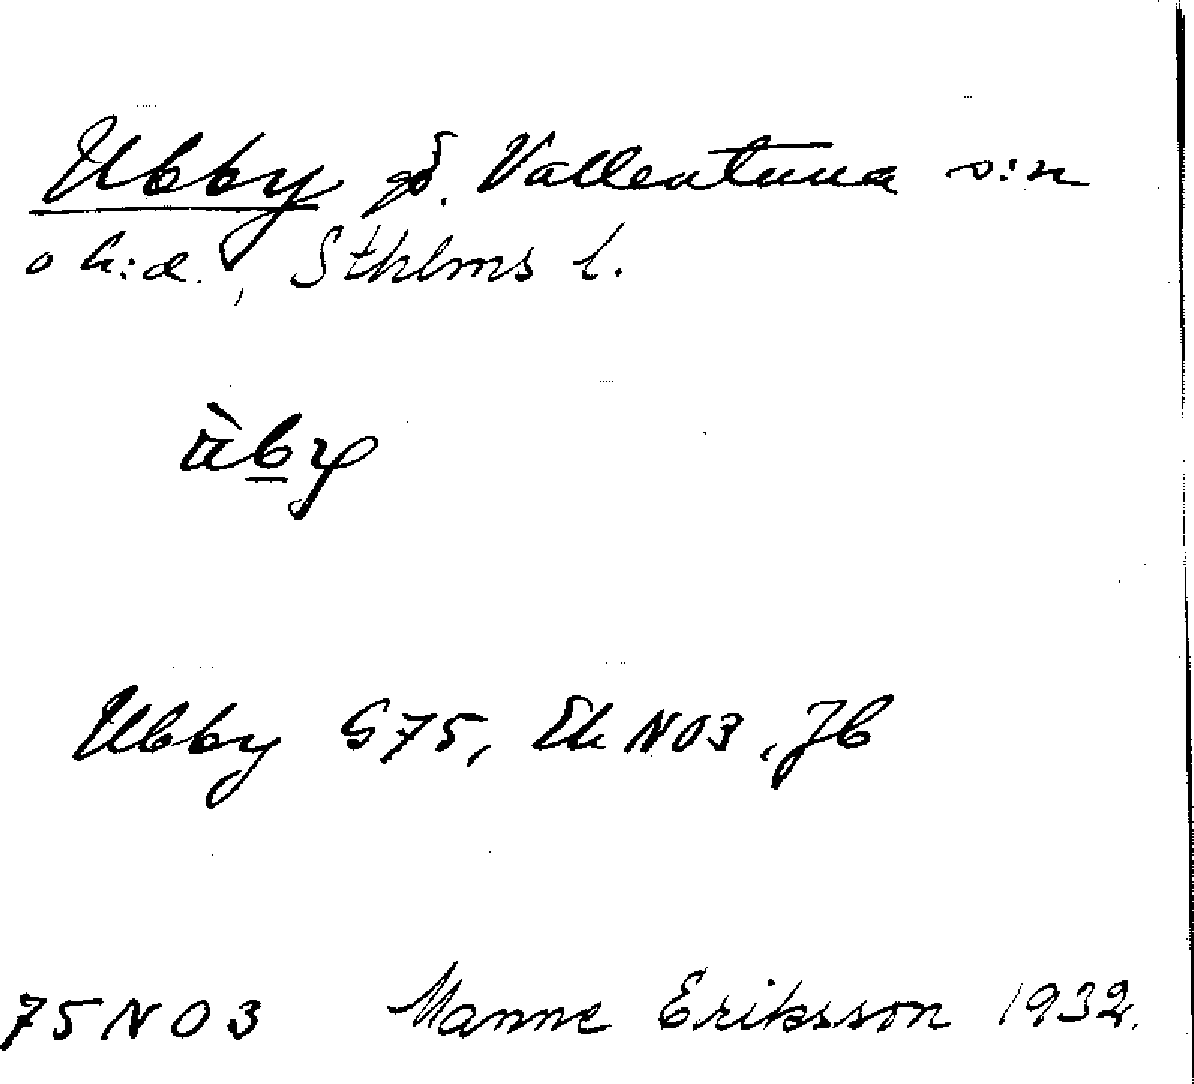 Ubby gd. Vallentuna s:n
o h:d., Sthlms l.
ùby
Ubby G75, Ek NO3, Jb
75NO3 Manne Eriksson 1932.